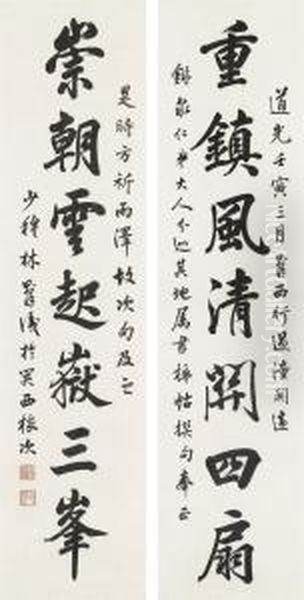 道光壬寅三月則徐西行過潼關適
重鎮風清關四扇
泉仁弟大人分巡其地屬書楹帖撰句奉正
是時方祈雨澤故次句及之
少穆林則徐識於關西旅次
崇朝雲起嶽三峯